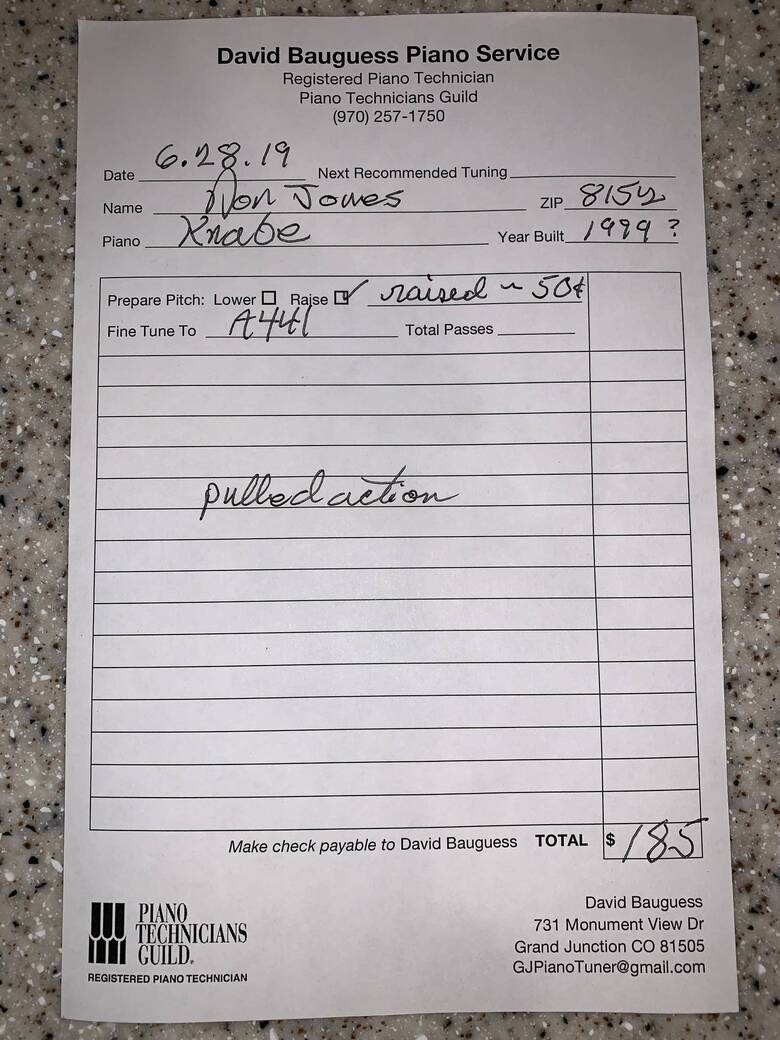 David Bauguess Piano Service
Registered Piano Technician
Piano Technicians Guild
(970) 257-1750
Date 6.28.19 Next Recommended Tuning
Name Don Jones ZIP 8152
Piano Knabe Year Built 1999 ?
Prepare Pitch: Lower ☐ Raise ☑ raised ~ 50¢
Fine Tune To A441 Total Passes
pulled action
Make check payable to David Bauguess TOTAL $ 185
PIANO
TECHNICIANS
GUILD®
REGISTERED PIANO TECHNICIAN
David Bauguess
731 Monument View Dr
Grand Junction CO 81505
GJPianoTuner@gmail.com